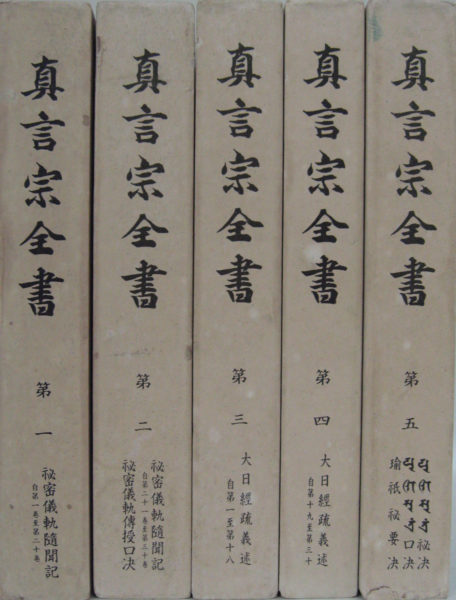 真言宗全書
第一
祕密儀軌隨聞記
自第一卷至第二十卷
真言宗全書
第二
祕密儀軌隨聞記
自第二十一卷至第三十卷
祕密儀軌傳授口決
真言宗全書
第三
大日經疏義述
自第一至第十八
真言宗全書
第四
大日經疏義述
自第十九至第三十
真言宗全書
第五
祕決
口決
瑜祇祕要決